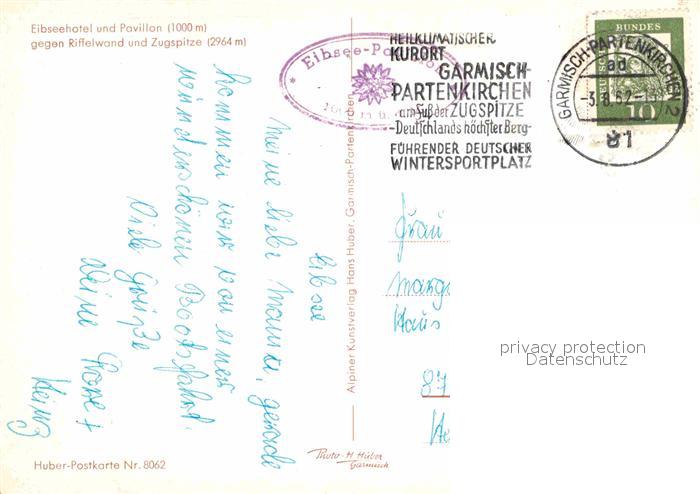 Eibseehotel und Pavillon (1000 m)
gegen Riffelwand und Zugspitze (2964 m)
Eibsee
Meine liebe Mammi, gerade
kommen wir von einer
wunderschönen Bootsfahrt.
Viele Grüße
Deine
Heinz
Huber-Postkarte Nr. 8062
Alpiner Kunstverlag Hans Huber, Garmisch-Partenkirchen
Photo-H. Huber
Garmisch
Eibsee-Pavillon
HEILKLIMATISCHER
KURORT
GARMISCH-
PARTENKIRCHEN
am Fuß der ZUGSPITZE
-Deutschlands höchster Berg-
FÜHRENDER DEUTSCHER
WINTERSPORTPLATZ
GARMISCH-PARTENKIRCHEN 2
ad
-3.8.62-
81
BUNDES
10
Frau
Marg
Haus
87
privacy protection
Datenschutz